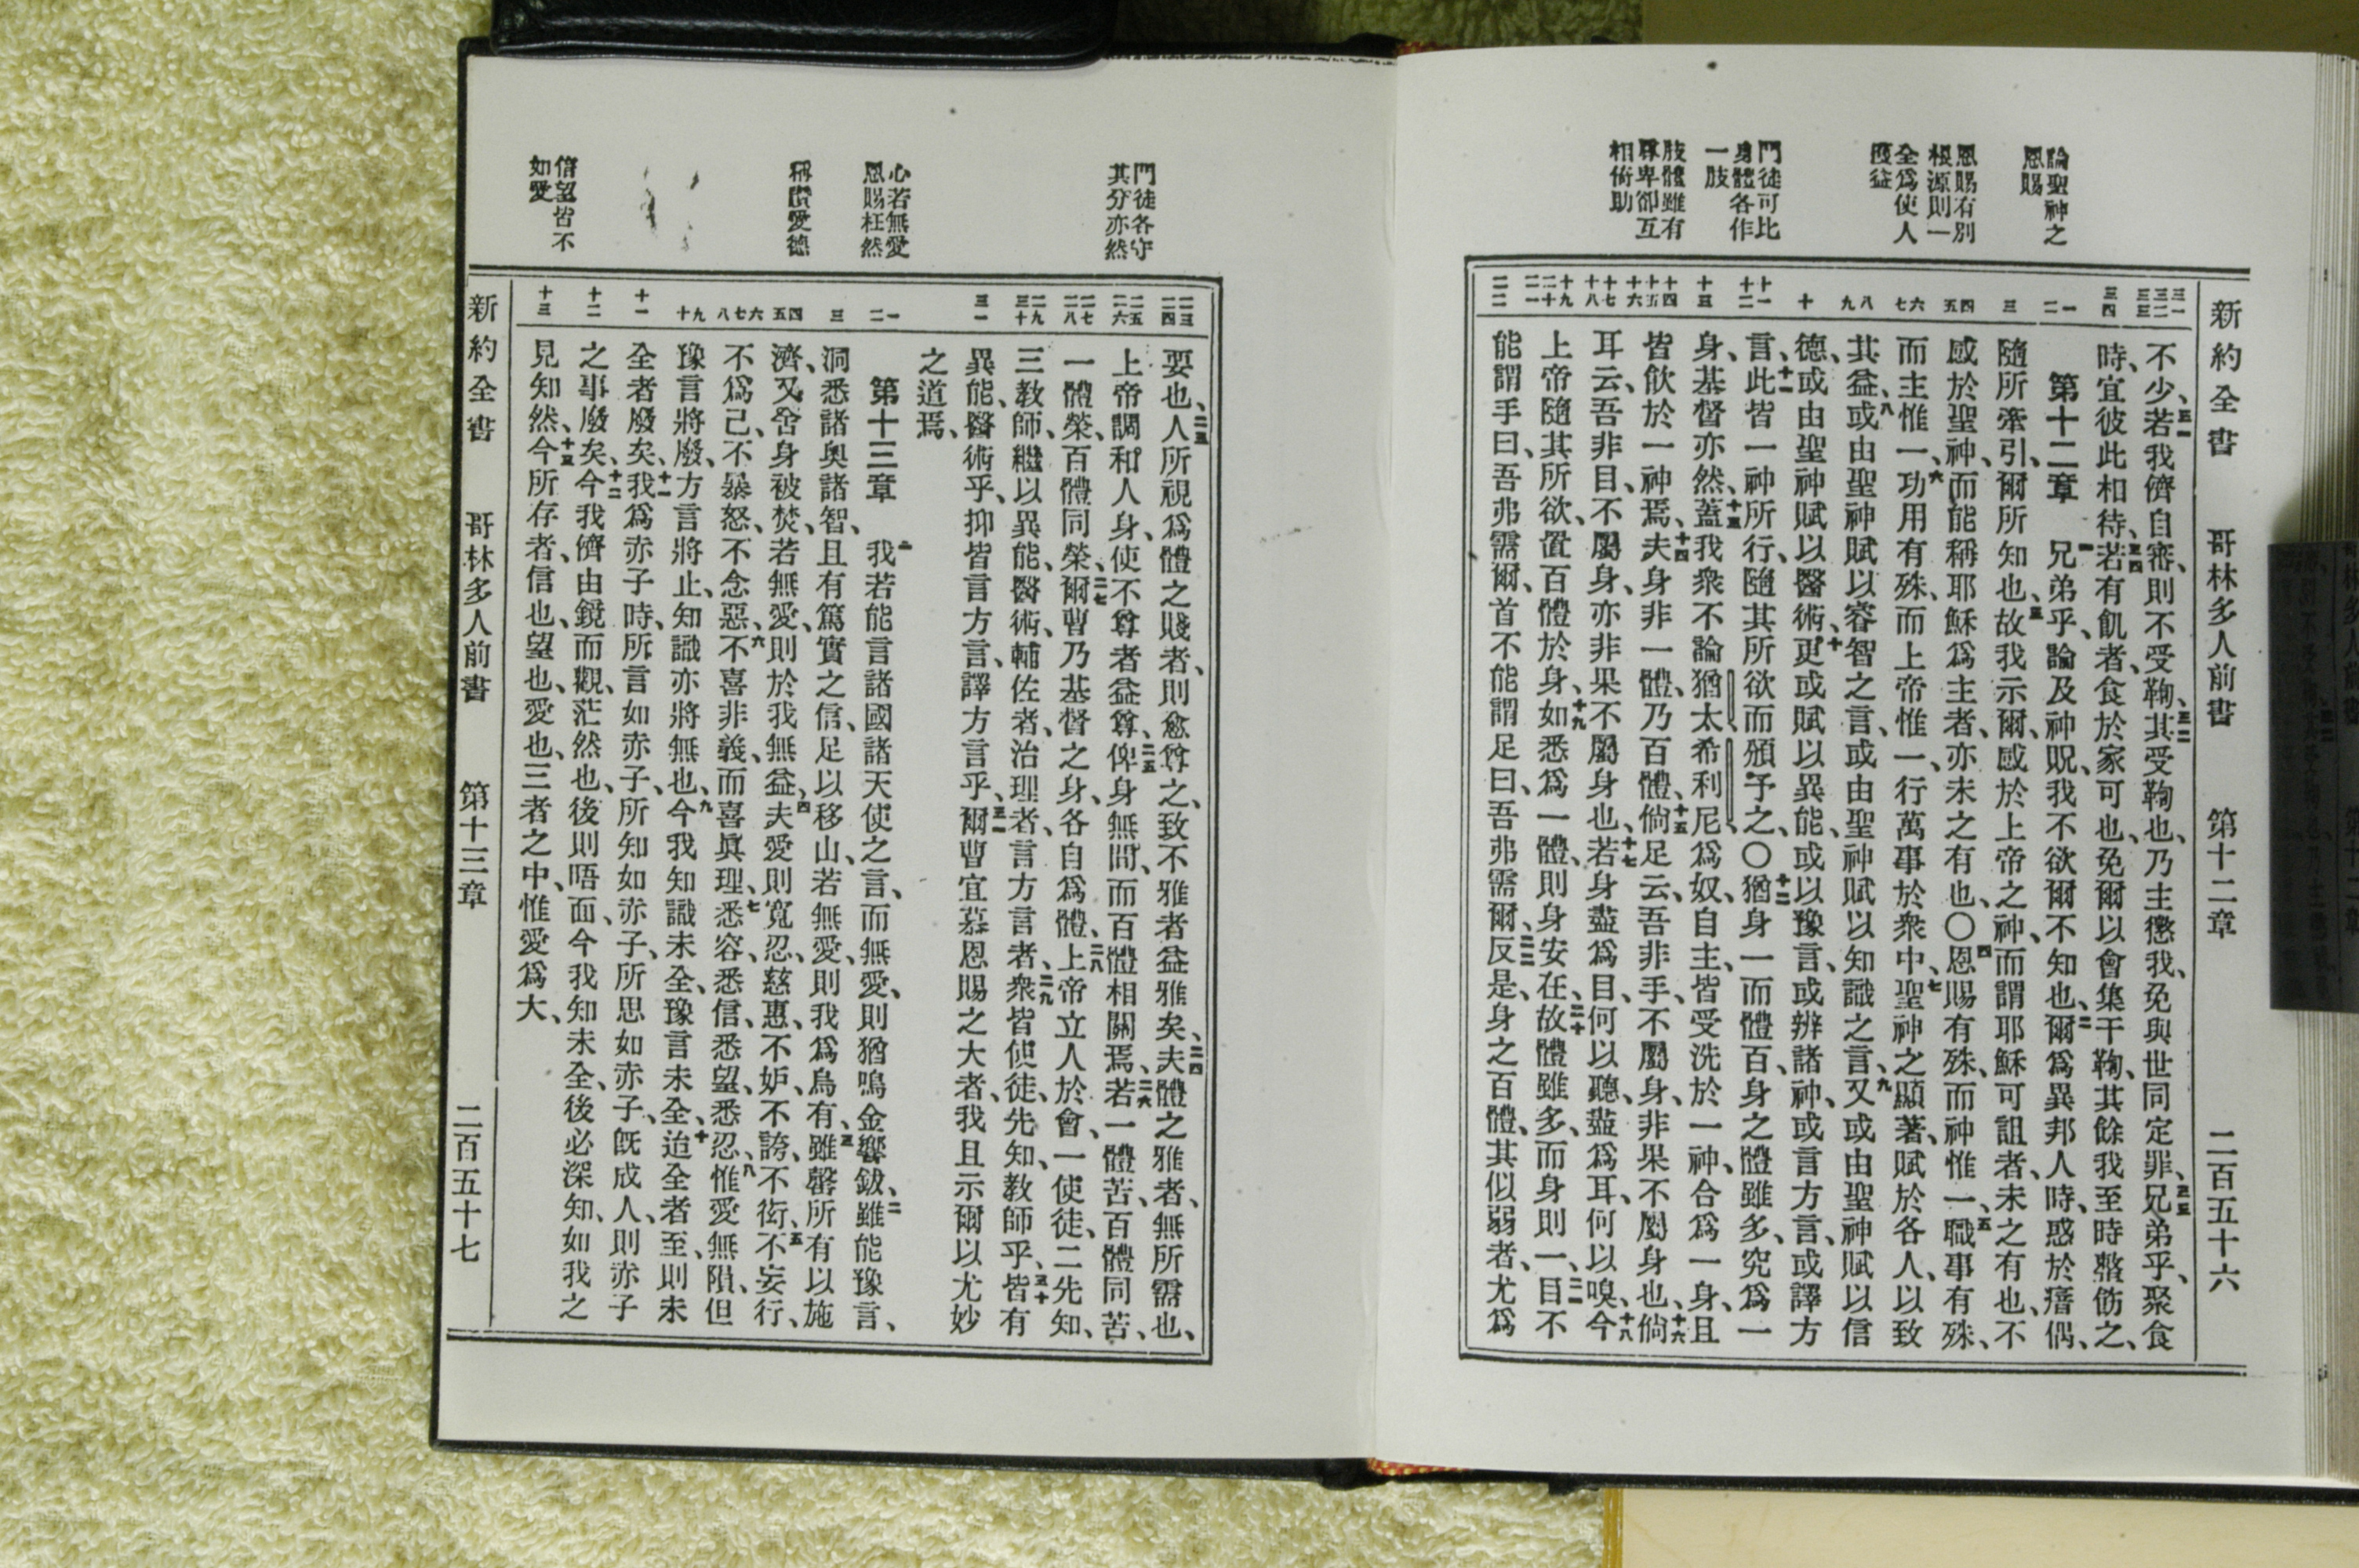 新約全書 哥林多人前書 第十二章 二百五十六
論聖神之
恩賜
恩賜有別
根源則一
全爲使人
獲益
門徒可比
身體各作
一肢
肢體雖有
尊卑卻互
相倚助
不少、三一若我儕自審、則不受鞫、三二其受鞫也、乃主懲我、免與世同定罪、三三兄弟乎、聚食
時、宜彼此相待、三四若有飢者、食於家可也、免爾以會集干鞫、其餘我至時整飭之、
第十二章 一兄弟乎、論及神貺、我不欲爾不知也、二爾爲異邦人時、惑於瘖偶、
隨所牽引、爾所知也、三故我示爾、感於上帝之神、而謂耶穌可詛者、未之有也、不
感於聖神、而能稱耶穌爲主者、亦未之有也、〇四恩賜有殊、而神惟一、五職事有殊、
而主惟一、六功用有殊、而上帝惟一、行萬事於衆中、七聖神之顯著、賦於各人、以致
其益、八或由聖神賦以睿智之言、或由聖神賦以知識之言、九又或由聖神賦以信
德、或由聖神賦以醫術、十更或賦以異能、或以豫言、或辨諸神、或言方言、或譯方
言、十一此皆一神所行、隨其所欲而頒予之、〇十二猶身一而體百、身之體雖多、究爲一
身、基督亦然、十三蓋我衆不論猶太希利尼、爲奴、自主、皆受洗於一神、合爲一身、且
皆飲於一神焉、十四夫身非一體、乃百體、十五倘足云、吾非手、不屬身、非果不屬身也、十六倘
耳云、吾非目、不屬身、亦非果不屬身也、十七若身盡爲目、何以聽、盡爲耳、何以嗅、十八今
上帝隨其所欲、置百體於身、十九如悉爲一體、則身安在、二十故體雖多、而身則一、二一目不
能謂手曰、吾弗需爾、首不能謂足曰、吾弗需爾、二二反是、身之百體、其似弱者、尤爲
門徒各守
其分亦然
心若無愛
恩賜枉然
稱讚愛德
信望皆不
如愛
要也、二三人所視爲體之賤者、則愈尊之、致不雅者益雅矣、二四夫體之雅者、無所需也、
上帝調和人身、使不尊者益尊、二五俾身無間、而百體相關焉、二六若一體苦、百體同苦、
一體榮、百體同榮、二七爾曹乃基督之身、各自爲體、二八上帝立人於會、一使徒、二先知、
三教師、繼以異能、醫術、輔佐者、治理者、言方言者、二九衆皆使徒、先知、教師乎、三十皆有
異能、醫術乎、抑皆言方言、譯方言乎、三一爾曹宜慕恩賜之大者、我且示爾以尤妙
之道焉、
第十三章 一我若能言諸國諸天使之言、而無愛、則猶鳴金響鈸、二雖能豫言、
洞悉諸奧諸智、且有篤實之信、足以移山、若無愛、則我爲烏有、三雖罄所有以施
濟、又舍身被焚、若無愛、則於我無益、四夫愛則寬忍、慈惠、不妒、不誇、不衒、五不妄行、
不爲己、不暴怒、不念惡、六不喜非義、而喜眞理、七悉容、悉信、悉望、悉忍、八惟愛無隕、但
豫言將廢、方言將止、知識亦將無也、九今我知識未全、豫言未全、十迨全者至、則未
全者廢矣、十一我爲赤子時、所言如赤子、所知如赤子、所思如赤子、旣成人、則赤子
之事廢矣、十二今我儕由鏡而觀、茫然也、後則晤面、今我知未全、後必深知、如我之
見知然、十三今所存者、信也、望也、愛也、三者之中、惟愛爲大、
新約全書 哥林多人前書 第十三章 二百五十七